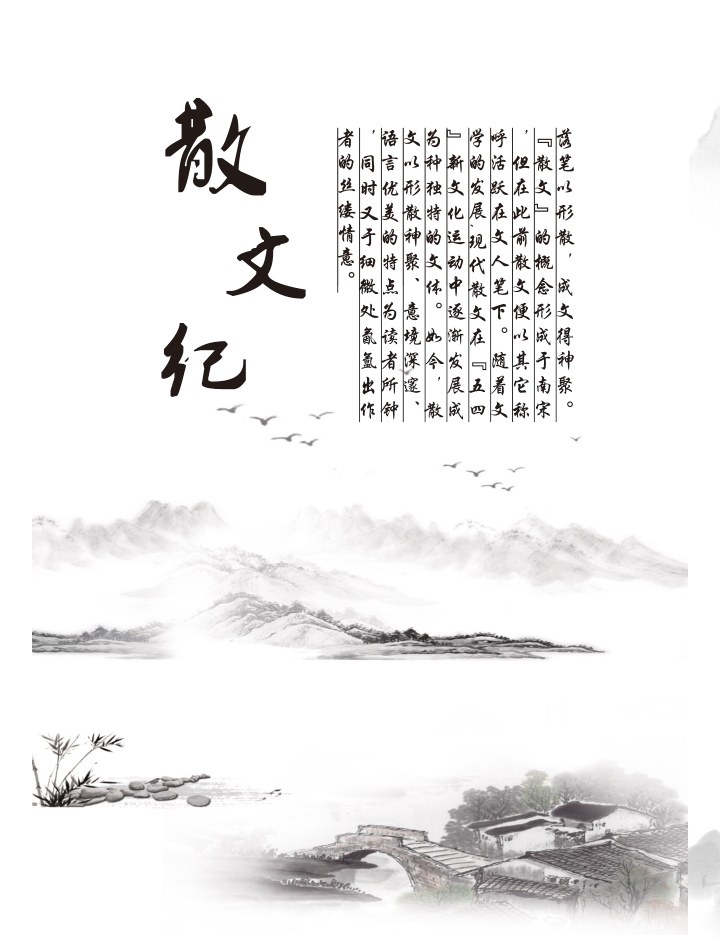 散文纪
落笔以形散，成文得神聚。
『散文』的概念形成于南宋
，但在此前散文便以其它称
呼活跃在文人笔下。随着文
学的发展,现代散文在『五四
』新文化运动中逐渐发展成
为种独特的文体。如今，散
文以形散神聚、意境深邃、
语言优美的特点为读者所钟
，同时又于细微处氤氲出作
者的丝缕情意。